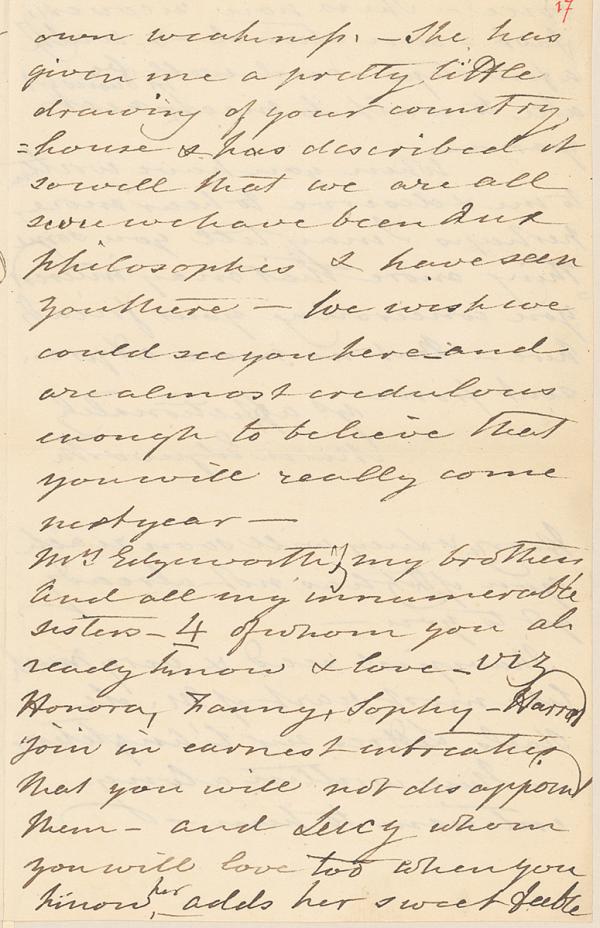 17
own weakness. – She has
given me a pretty little
drawing of your country
=house & has described it
so well that we are all
sure we have been Aux
philosophes & have seen
you there – We wish we
could see you here – and
are almost credulous
enough to believe that
you will really come
next year –
Mrs Edgeworth, my brothers
And all my innumerable
sisters – 4 of whom you al
ready know & love – viz
Honora, Fanny, Sophy – Harriet
Join in earnest intreaties
that you will not disappoint
them – and Lucy whom
you will love too when you
know her, adds her sweet feeble